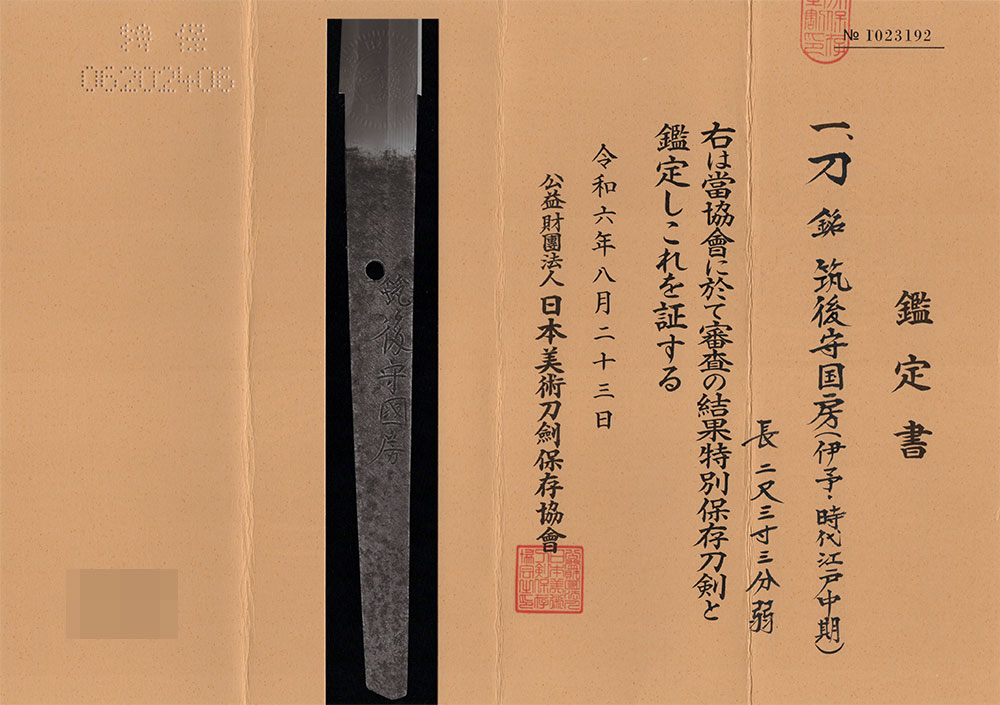 № 1023192
鑑定書
一、刀 銘 筑後守国房(伊予・時代江戸中期)
長二尺三寸三分弱
右は當協會に於て審査の結果特別保存刀剣と
鑑定しこれを証する
令和六年八月二十三日
公益財團法人日本美術刀劍保存協會
筑後守國房
特保
06202406